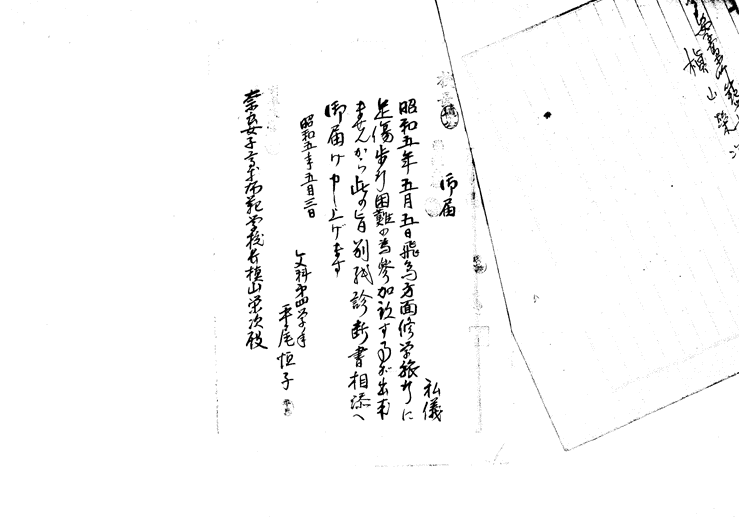 御届
私儀
昭和五年五月五日飛鳥方面修学旅行に
足傷歩行困難の為参加致す事が出来
ませんから此の旨別紙診断書相添へ
御届け申上げます
昭和五年五月三日
文科第四学年
平尾恒子
奈良女子高等師範学校長槇山栄次殿
槇山栄次